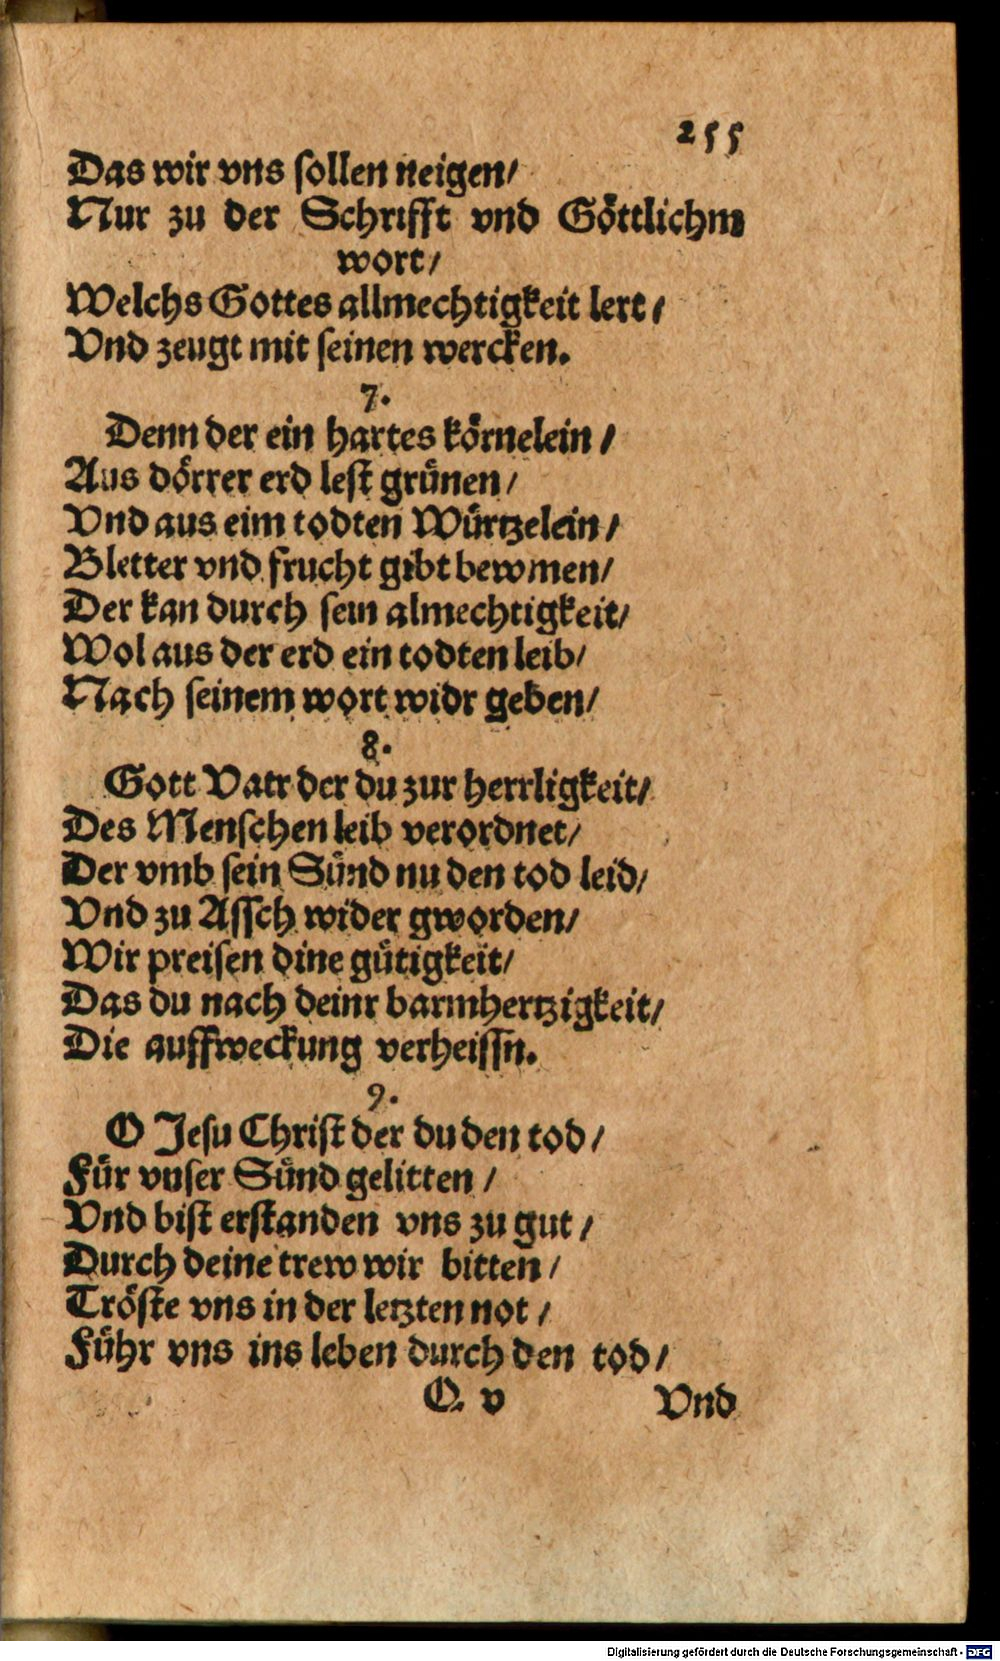 255
Das wir vns sollen neigen/
Nur zu der Schrifft vnd Göttlichm
wort/
Welchs Gottes allmechtigkeit lert/
Vnd zeugt mit seinen wercken.
7.
Denn der ein hartes körnelein/
Aus dörrer erd lest grünen/
Vnd aus eim todten Würtzelein/
Bletter vnd frucht gibt bewmen/
Der kan durch sein almechtigkeit/
Wol aus der erd ein todten leib/
Nach seinem wort widr geben/
8.
Gott Vatr der du zur herrligkeit/
Des Menschen leib verordnet/
Der vmb sein Sünd nu den tod leid/
Vnd zu Assch wider gworden/
Wir preisen dine gütigkeit/
Das du nach deinr barmhertzigkeit/
Die auffweckung verheissn.
9.
O Jesu Christ der du den tod/
Für vnser Sünd gelitten/
Vnd bist erstanden vns zu gut/
Durch deine trew wir bitten/
Tröste vns in der letzten not/
Führ vns ins leben durch den tod/
Q. v Vnd
Digitalisierung gefördert durch die Deutsche Forschungsgemeinschaft - DFG